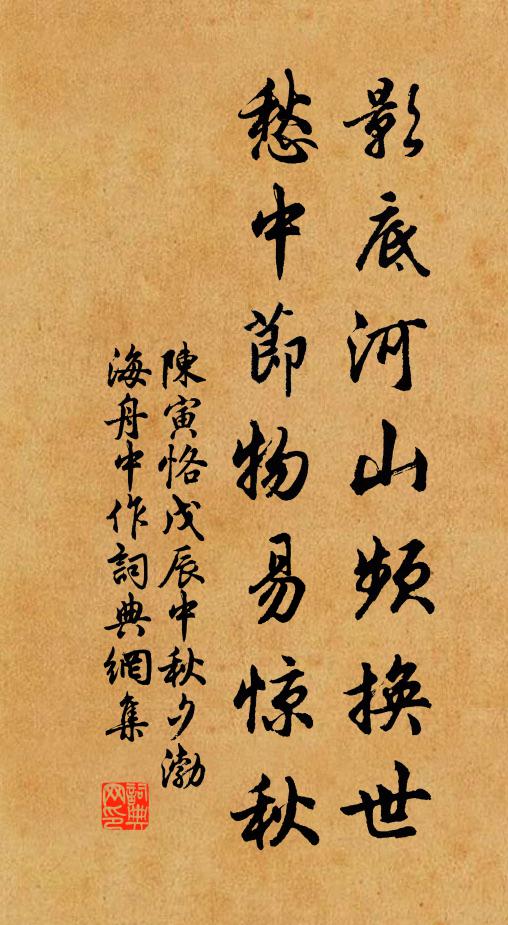 影底河山频换世
愁中節物易惊秋
陳寅恪戊辰中秋夕渤
海舟中作詞典網集
詞典网印